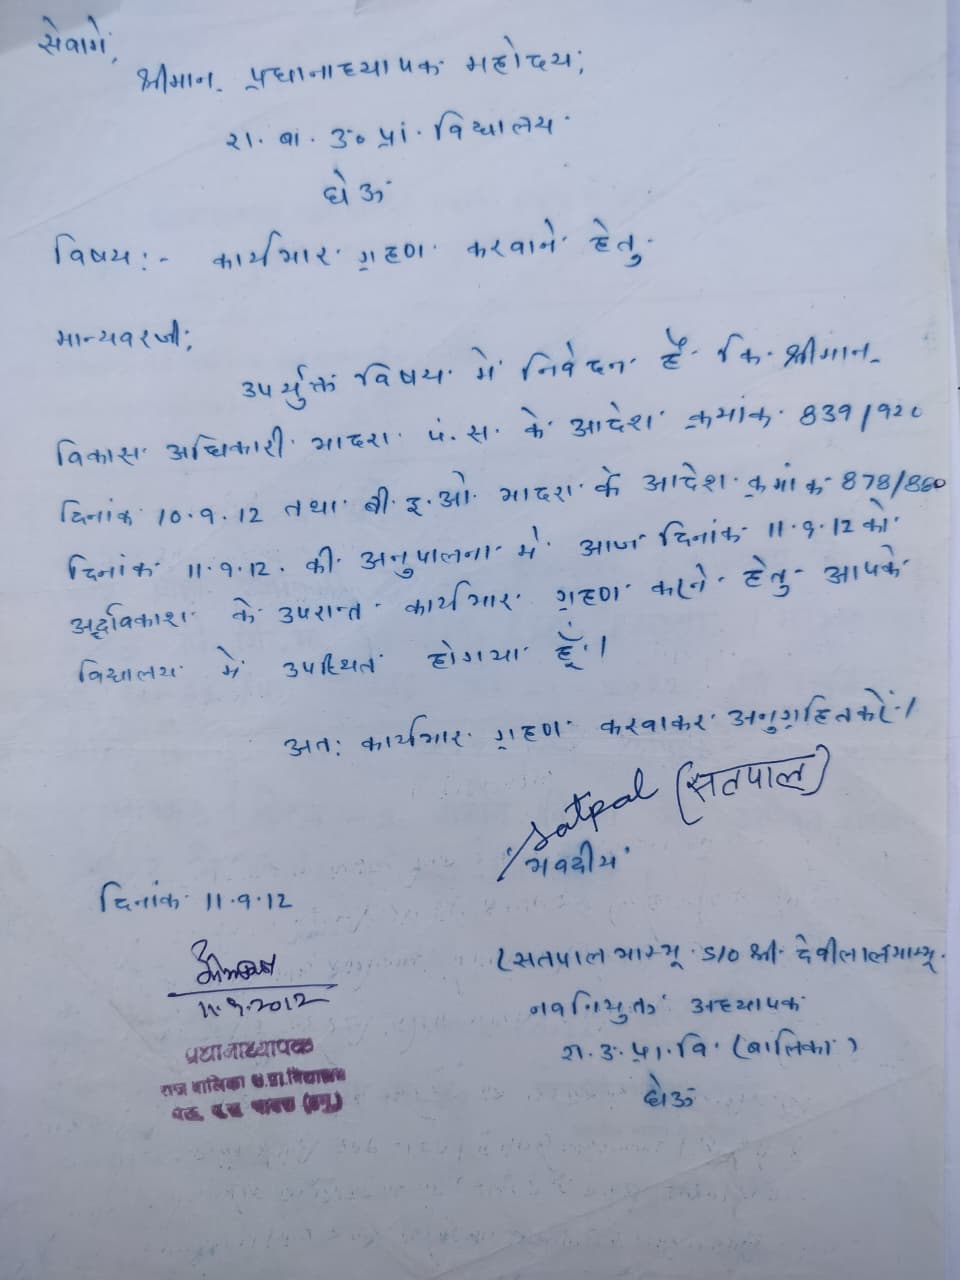 सेवामें,
श्रीमान प्रधानाध्यापक महोदय,
रा. बा. उ० प्रा. विद्यालय
घेऊ
विषय:- कार्यभार ग्रहण करवाने हेतु
मान्यवरजी,
उपर्युक्त विषय में निवेदन है कि श्रीमान
विकास अधिकारी भादरा पं.स. के आदेश क्रमांक 839/920
दिनांक 10.9.12 तथा बी.इ.ओ. भादरा के आदेश क्रमांक 878/880
दिनांक 11.9.12 की अनुपालना में आज दिनांक 11.9.12 को
अर्द्धवकाश के उपरान्त कार्यभार ग्रहण करने हेतु आपके
विद्यालय में उपस्थित होगया हूँ।
अत: कार्यभार ग्रहण करवाकर अनुग्रहितकरें।
Satpal (सतपाल)
भवदीय
दिनांक 11.9.12
(सतपाल भाम्भू S/O श्री देवीलाल भाम्भू
नवनियुक्त अध्यापक
रा. उ. प्रा. वि. (बालिका)
घेऊ
11.9.2012
प्रधानाध्यापक
राज बालिका उ.प्रा.विद्यालय